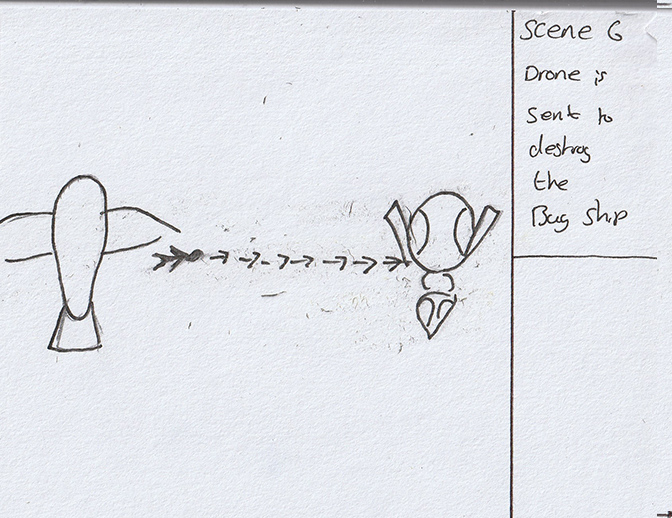 Scene 6
Drone is
sent to
destroy
the
Bug Ship